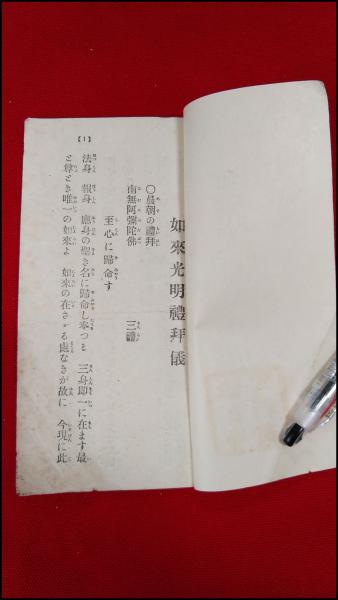 如來光明禮拜儀
〇晨朝の禮拜
南無阿彌陀佛 三禮
至心に歸命す
法身 報身 應身の聖き名に歸命し奉つる 三身即一に在ます最
と尊とき唯一の如來よ 如來の在さゞる處なきが故に 今現に此
【1】